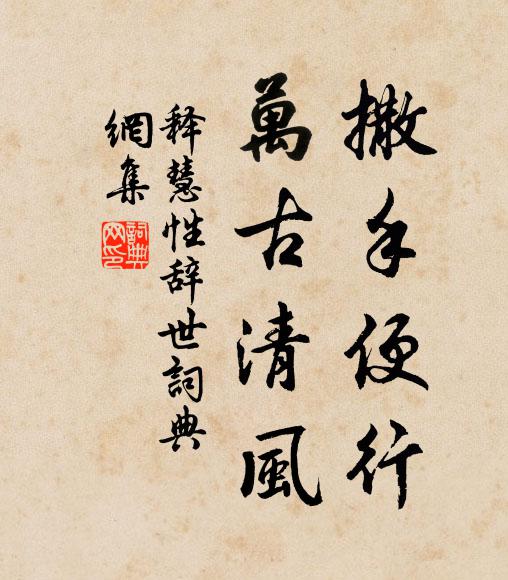 撒手便行
萬古清風
释慧性辞世詞典
網集
詞典
网印